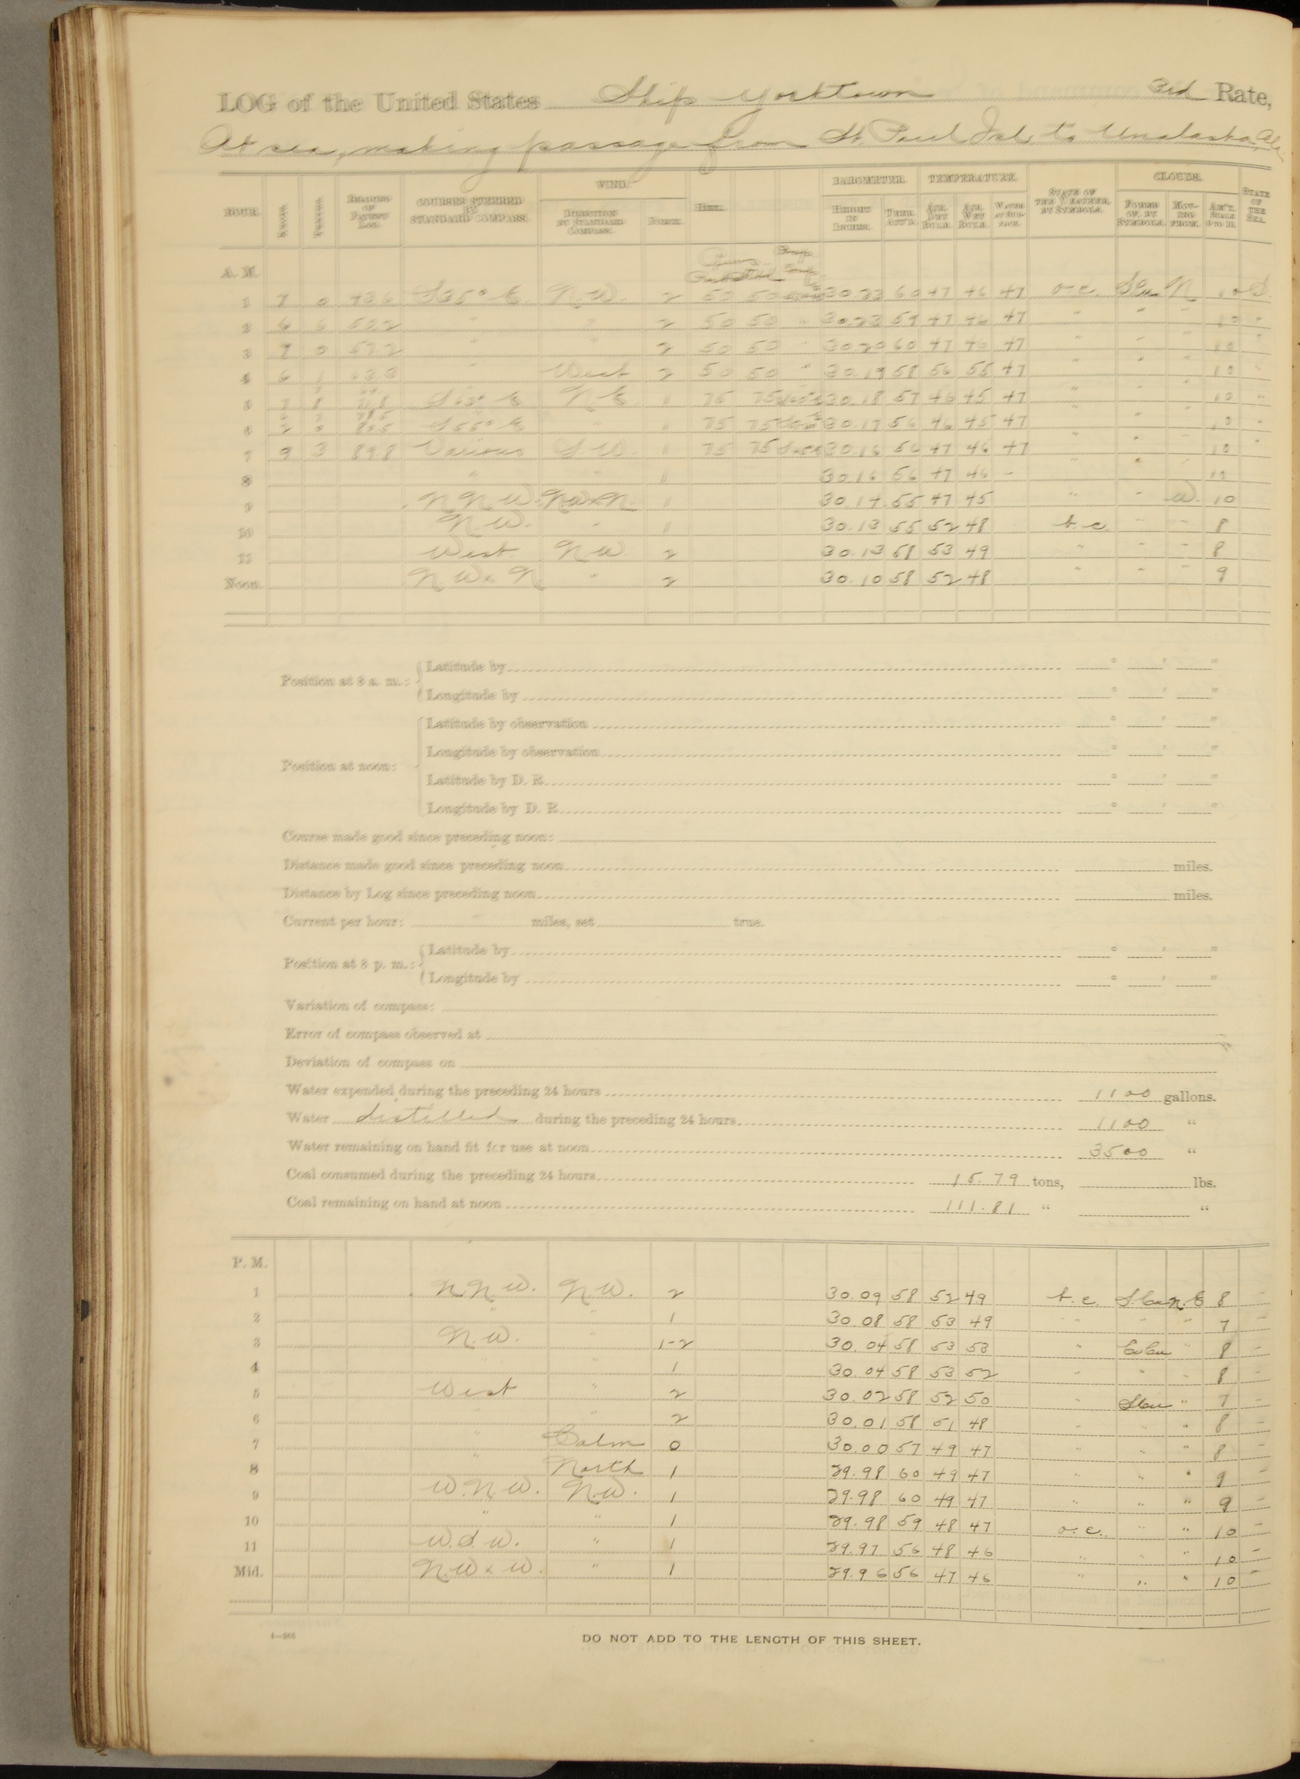 LOG of the United States Ship Yorktown 3rd Rate,
At sea, making passage from St. Paul Isl. to Unalaska, Ala
HOUR. KNOTS. TENTHS. READING OF PATENT LOG. COURSES STEERED BY STANDARD COMPASS. WIND. DIRECTION BY STANDARD COMPASS. FORCE. HEEL. BAROMETER. HEIGHT IN INCHES. THER. ATT'D. TEMPERATURE. AIR, DRY BULB. AIR, WET BULB. WATER AT SURFACE. STATE OF THE WEATHER, BY SYMBOLS. CLOUDS. FORMS OF, BY SYMBOLS. MOVING FROM. AM'T, SCALE 0 TO 10. STATE OF THE SEA.
A. M.
1 7 0 43.6 S35° E N.W. 2 50 50 30.23 60 47 46 47 o.c. N 10 S.
2 6 6 50.2 " " 2 50 50 " 30.23 59 47 46 47 " " " 10 "
3 7 0 57.2 " " 2 50 50 " 30.20 60 47 46 47 " " 10
4 6 1 63.3 West 2 50 50 " 30.19 58 56 55 47 " " 10
5 7 8 N E 1 75 75 30.18 57 46 45 47 " " 10 "
6 2 0 S55° E " 1 75 75 30.17 56 46 45 47 " " 10 "
7 9 3 89.8 Various S.W. 1 75 75 30.16 56 47 46 47 " " 10 "
8 " " 1 30.16 56 47 46 - " " 10
9 N N W. 1 30.14 55 47 45 " " W. 10
10 N W. " 1 30.13 55 52 48 b.c. " " 8
11 West N W 2 30.13 58 53 49 " " " 8
Noon. N W x N " 2 30.10 58 52 48 " " " 9
Position at 8 a. m.: Latitude by ° ' "
Longitude by ° ' "
Position at noon: Latitude by observation ° ' "
Longitude by observation ° ' "
Latitude by D. R. ° ' "
Longitude by D. R. ° ' "
Course made good since preceding noon:
Distance made good since preceding noon miles.
Distance by Log since preceding noon miles.
Current per hour: miles, set true.
Position at 8 p. m.: Latitude by ° ' "
Longitude by ° ' "
Variation of compass:
Error of compass observed at
Deviation of compass on
Water expended during the preceding 24 hours 1100 gallons.
Water distilled during the preceding 24 hours 1100 "
Water remaining on hand fit for use at noon 3500 "
Coal consumed during the preceding 24 hours 15.79 tons, lbs.
Coal remaining on hand at noon 111.81 " "
P. M.
1 N N W. N.W. 2 30.09 58 52 49 b.c. N.E 8 -
2 " " 1 30.08 58 53 49 " " " 7 -
3 N.W. " 1-2 30.04 58 53 53 " " 8 -
4 " " 1 30.04 58 53 52 " " " 8 -
5 West " 2 30.02 58 52 50 " " 7 -
6 " " 2 30.01 58 51 48 " " " 8 -
7 " Calm 0 30.00 57 49 47 " " " 8 -
8 " North 1 29.98 60 49 47 " " " 9 -
9 W.N.W. N.W. 1 29.98 60 49 47 " " " 9 -
10 " " 1 29.98 59 48 47 o.c. " " 10 -
11 W.S.W. " 1 29.97 56 48 46 " " " 10 -
Mid. N.W x W. " 1 29.96 56 47 46 " " " 10 -
DO NOT ADD TO THE LENGTH OF THIS SHEET.